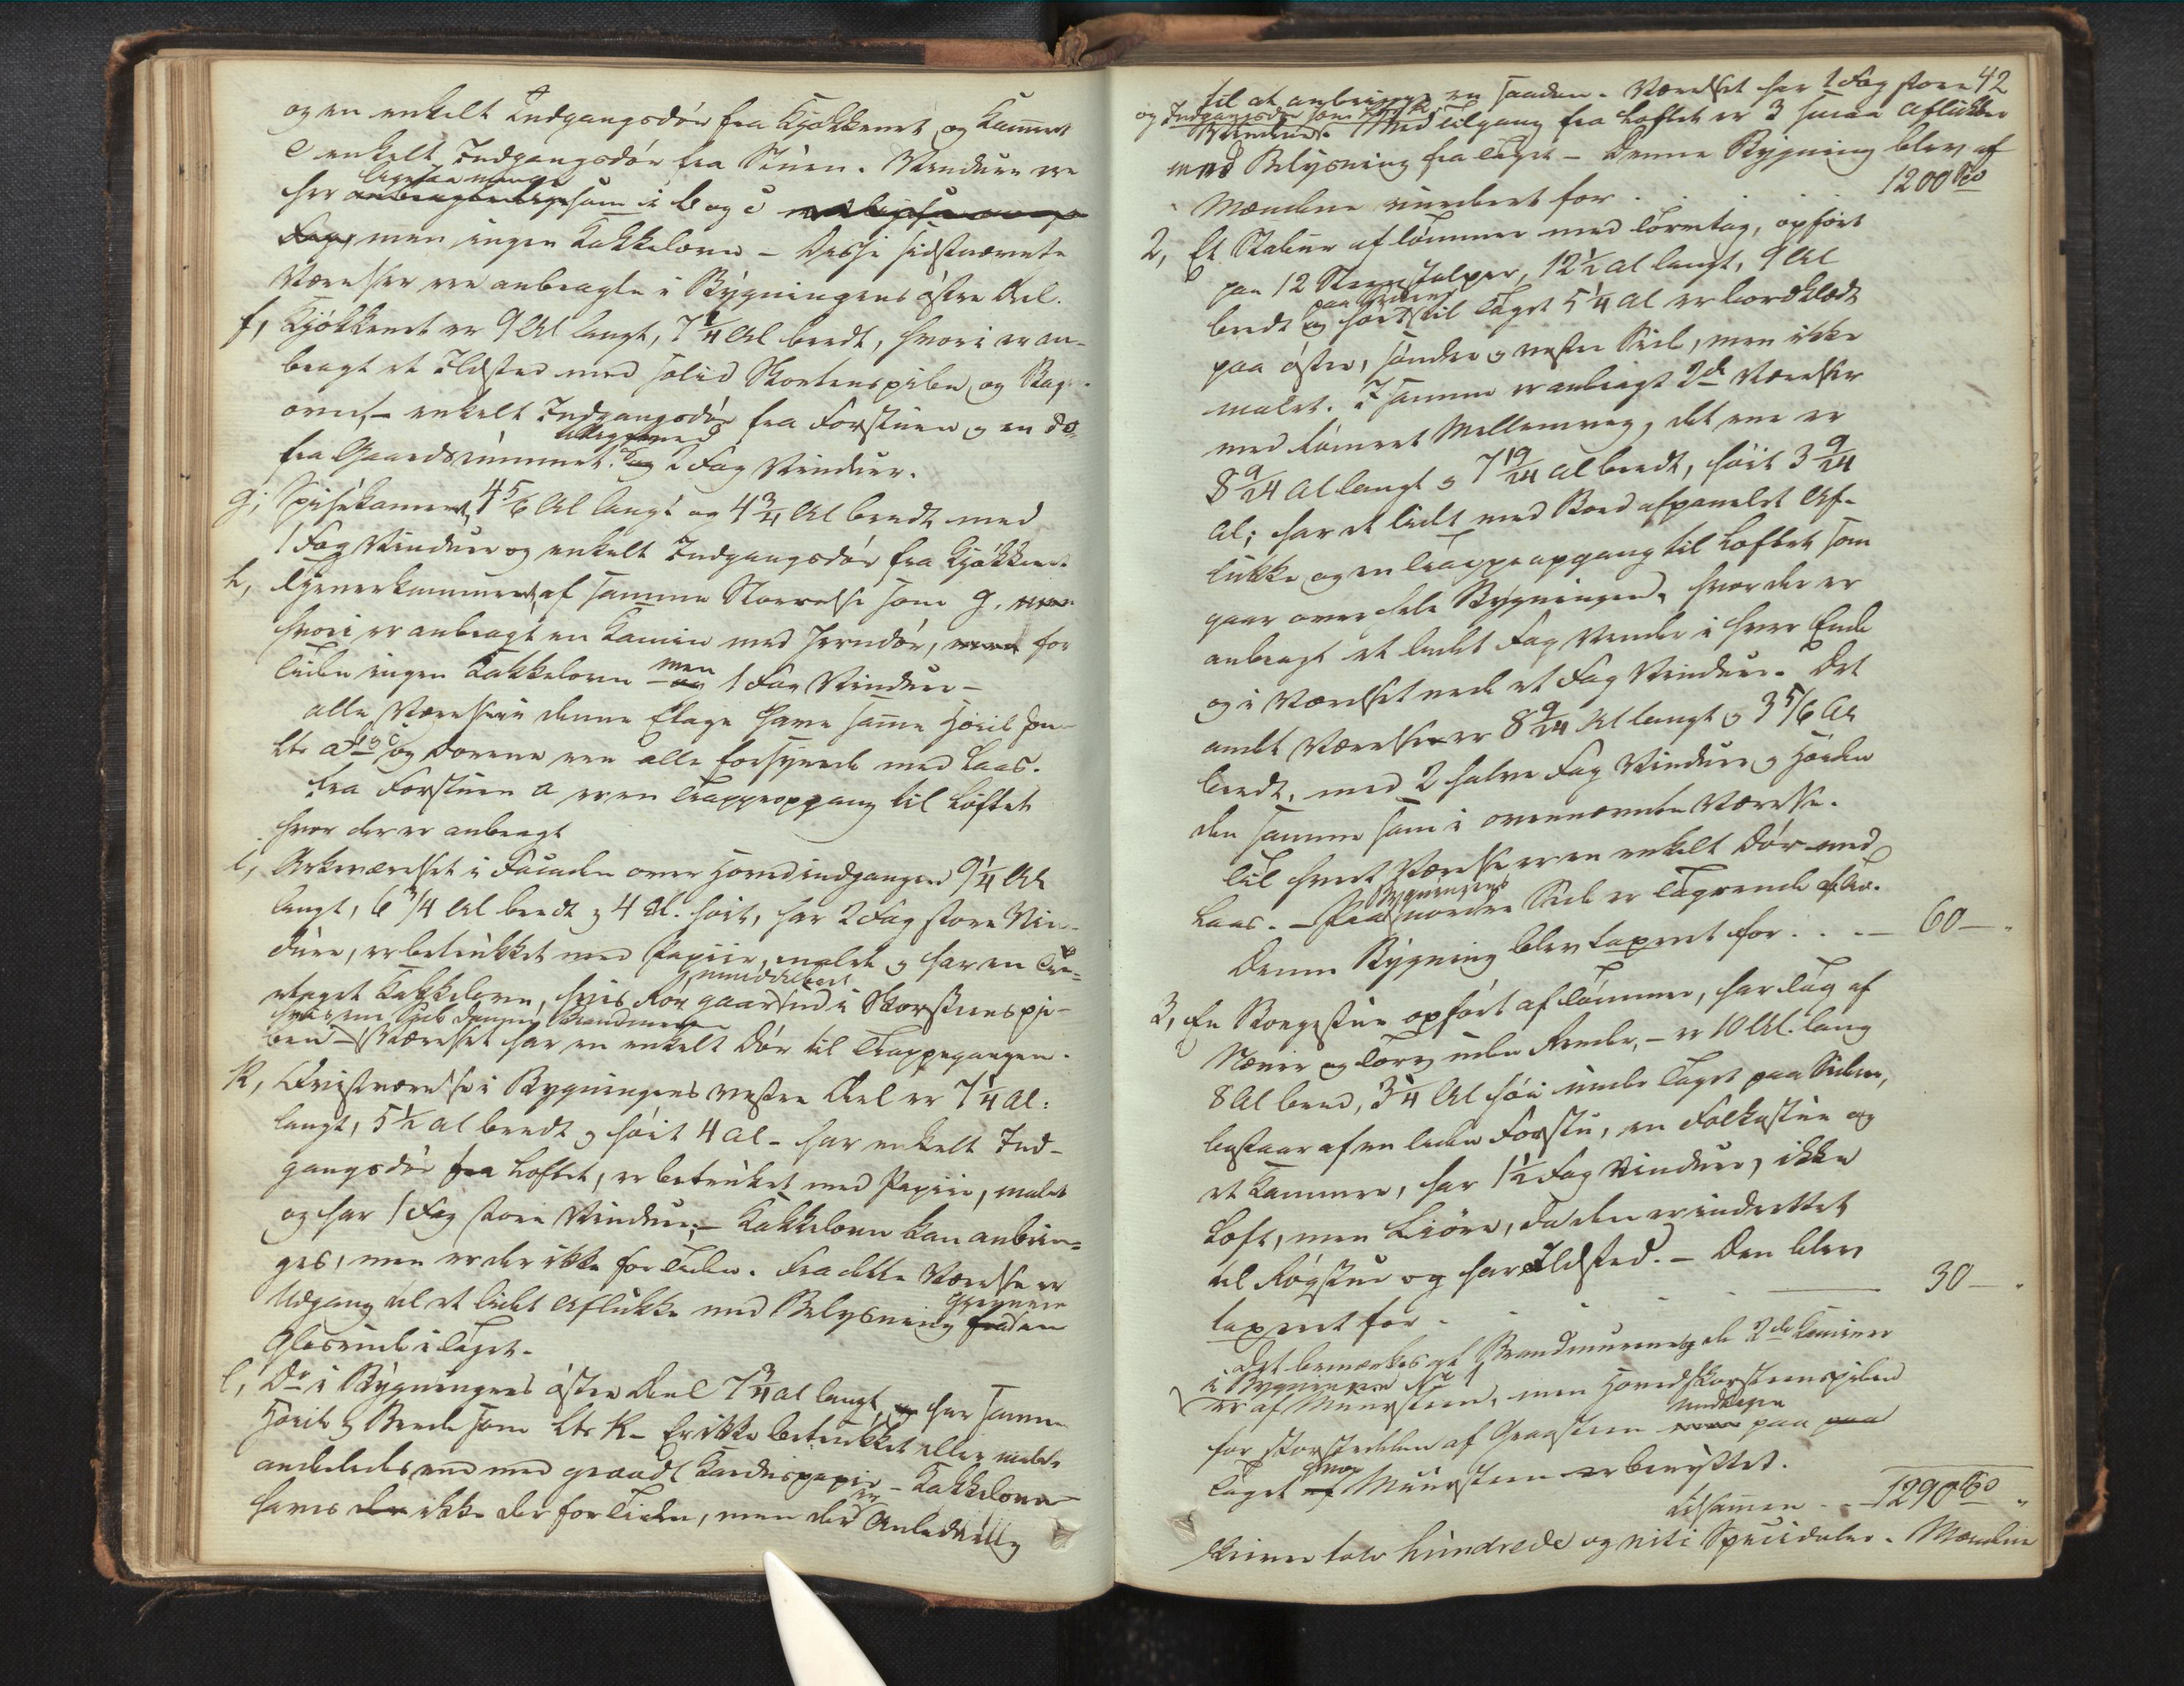 og en enkelt Indgangsdör fra Kjökkenet og Kammer
e enkelt Indgangsdör fra Stuen. Vinduer ere
ligesaa mange
her anbragte ligesom i b og c
Fag, men ingen Kakkelovn – Disse sidstnævnte
Værelser ere anbragte i Bygningens östre Deel.
f, Kjökkenet er 9 Al langt, 7 1/4 Al bredt, hvori er an-
bragt et Ildsted med solid Skorstenspibe og Bager-
ovn, – enkelt Indgangsdör fra Forstuen og en do
fra Gaardsrummet. og 2 Fag Vinduer.
g, Spisekamret, 4 5/6 Al langt og 4 3/4 Al bredt med
1 Fag Vinduer og enkelt Indgangsdör fra Kjökkenet
h, Tjenerkammeret, af samme Störrelse som g,
hvori er anbragt en Kamin med Jerndör, men for
Tiden ingen Kakkelovn – men 1 Fag Vinduer –
alle Værelser i denne Etage have samme Höide som
Ltr a og c og Dörene ere alle forsynede med Laas.
Fra Forstuen a er en Trappeopgang til Loftet
hvor der er anbragt
i, Arkeværelset i Facaden over Hovedindgangen 9 1/4 Al
langt, 6 3/4 Al bredt og 4 Al. höit, har 2 Fag store Vin-
duer, er betrukket med Papiir, malet og har en Tre-
etages Kakkelovn, hvis Rör gaar umiddelbart ind i Skorsteenspi-
ben – Værelset har en enkelt Dör til Trappegangen.
k, Qvistværelse i Bygningens vestre Deel er 7 1/4 Al:
langt, 5 1/2 Al bredt og höit 4 Al – har enkelt Ind-
gangsdör fra Loftet, er betrukket med Papiir, malet
og har 1 Fag store Vinduer; – Kakkelovn kan anbrin-
ges, men er der ikke for Tiden. Fra dette Værelse er
Udgang til et lidet Aflukke med Belysning gjennem en
Glasrude i Taget.
l, Do i Bygningens östre Deel 7 3/4 Al langt, har samme
Höide og Brede som Ltr k – Er ikke betrukket eller malet
anderledes end med graadt Kardupapir – Kakkelovn
haves der ikke der for Tiden, men der er Anledning
42
til at anbringe en saadan. Værelset har 1 Fag store
og Indgangsdör som
Vinduer. Med Tilgang fra Loftet er 3 smaa Aflukker
med Belysning fra Taget – Denne Bygning blev af
Mændene vurderet for . . . 1200 Spd
2, Et Stabur af Tömmer med Törvetag, opfört
paa 12 Steenstolper, 12 1/2 Al langt, 9 Al
bredt og höit til Taget 5 1/4 Al er bordklædt
paa östre, söndre og vestre Side, men ikke
malet. I samme er anbragt 2de Værelser
med tömret Mellemvæg, det ene er
8 9/24 Al langt og 7 19/24 Al bredt, höit 3 9/24
Al; har et lidt med Bord afpanelet Af-
lukke og en Trappeopgang til Loftet, som
gaar over hele Bygningen, hvor der er
anbragt et lidet Fag Vindue i hver Ende
og i Værelset nede et Fag Vinduer. Det
andet Værelse er 8 9/24 Al langt og 3 5/6 Al
bredt, med 2 halve Fag Vinduer og Höiden
den samme som i ovennævnte Værelse.
Til hvert Værelse er en enkelt Dör med
Laas. – Paa Bygningens nordre Side er Tagrende af Træ.
Denne Bygning blev taxeret for . . . – 60 –
3, En Borgestue opfört af Tömmer, har Tag af
Næver og Törv uden Rende, – er 10 Al. lang
8 Al bred, 3 1/4 Al höi under Taget paa Siden,
bestaar af en liden Forstue, en Folkestue og
et Kammer, har 1 1/2 Fag Vinduer, ikke
Loft, men Liöre, da den er indrettet
til Rögstue og har Ildsted. – Den blev
taxeret for . . . 30 –
Det bemærkes at Brandmurene og de 2de Kaminer
i Bygningen No 1
er af Muursteen, men Hovedskorsteenspiben
for störstedelen af Graasteen undtagen paa
Taget hvor Muursteen er benyttet.
tilsammen – 1290 Spd
skriver tolv hundrede og niti Speciedaler. Mændene